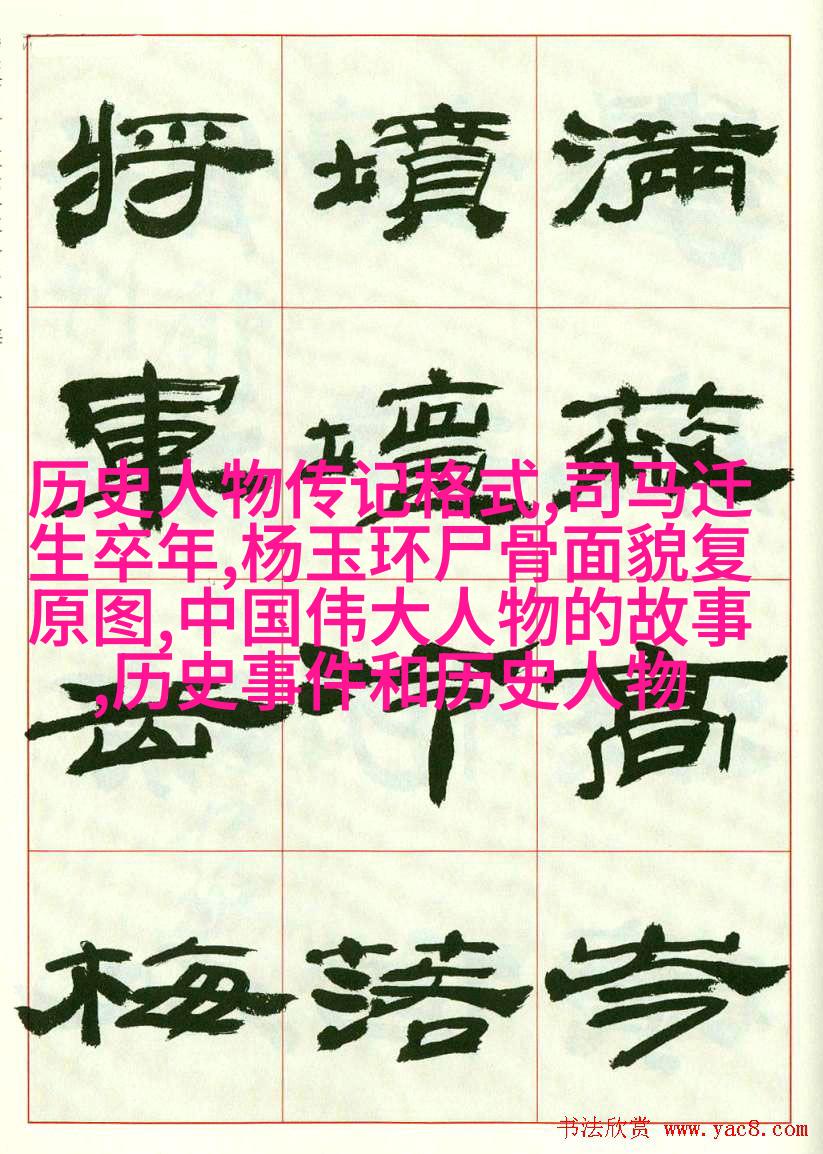 滿
蔽
高
岑
墳
壇
落
将
軍
梅
历史人物传记格式,司马迁
生卒年,杨玉环尸骨面貌复
原图,中国伟大人物的故事
,历史事件和历史人物
书法欣赏 www.yac8.com